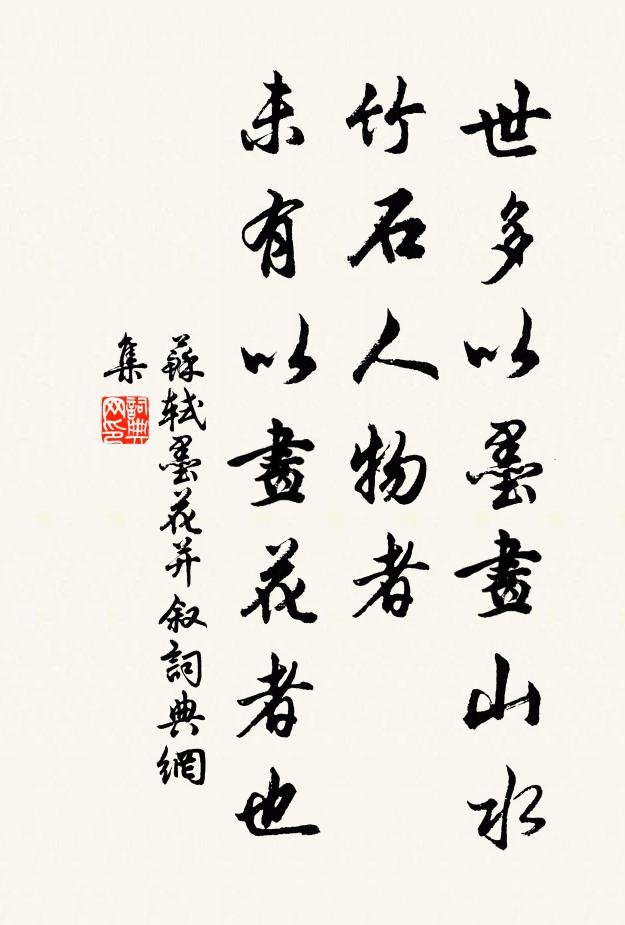 世多以墨畫山水
竹石人物者
未有以畫花者也
蘇軾墨花并叙詞典網
集
詞典
网印